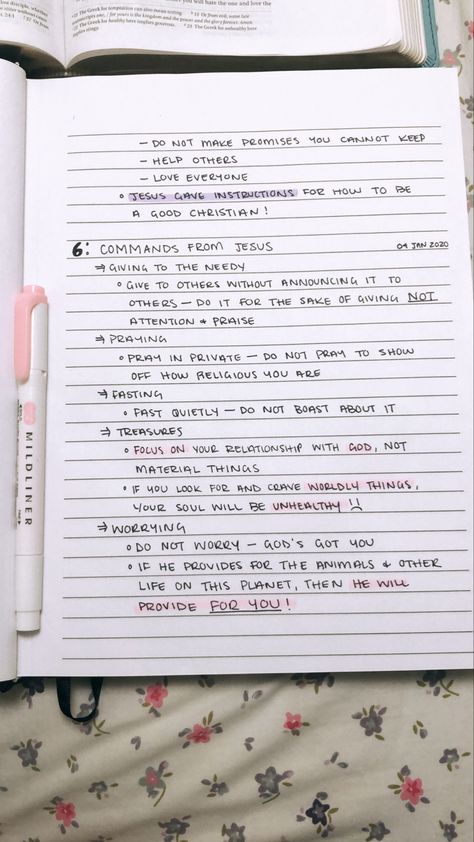 you will hate the one and love the
The Greek for temptation can also mean testing
for yours is the kingdom and the power and the glory forever. Amen.
The Greek for healthy here implies generous.
The Greek for unhealthy here
implies stingy.
– DO NOT MAKE PROMISES YOU CANNOT KEEP
– HELP OTHERS
– LOVE EVERYONE
◦ JESUS GAVE INSTRUCTIONS FOR HOW TO BE
A GOOD CHRISTIAN!
6: COMMANDS FROM JESUS 04 JAN 2020
⇒ GIVING TO THE NEEDY
◦ GIVE TO OTHERS WITHOUT ANNOUNCING IT TO
OTHERS – DO IT FOR THE SAKE OF GIVING NOT
ATTENTION & PRAISE
⇒ PRAYING
◦ PRAY IN PRIVATE – DO NOT PRAY TO SHOW
OFF HOW RELIGIOUS YOU ARE
⇒ FASTING
◦ FAST QUIETLY – DO NOT BOAST ABOUT IT
⇒ TREASURES
◦ FOCUS ON YOUR RELATIONSHIP WITH GOD, NOT
MATERIAL THINGS
◦ IF YOU LOOK FOR AND CRAVE WORLDLY THINGS,
YOUR SOUL WILL BE UNHEALTHY!!
⇒ WORRYING
◦ DO NOT WORRY – GOD'S GOT YOU
◦ IF HE PROVIDES FOR THE ANIMALS & OTHER
LIFE ON THIS PLANET, THEN HE WILL
PROVIDE FOR YOU!
MILDLINER